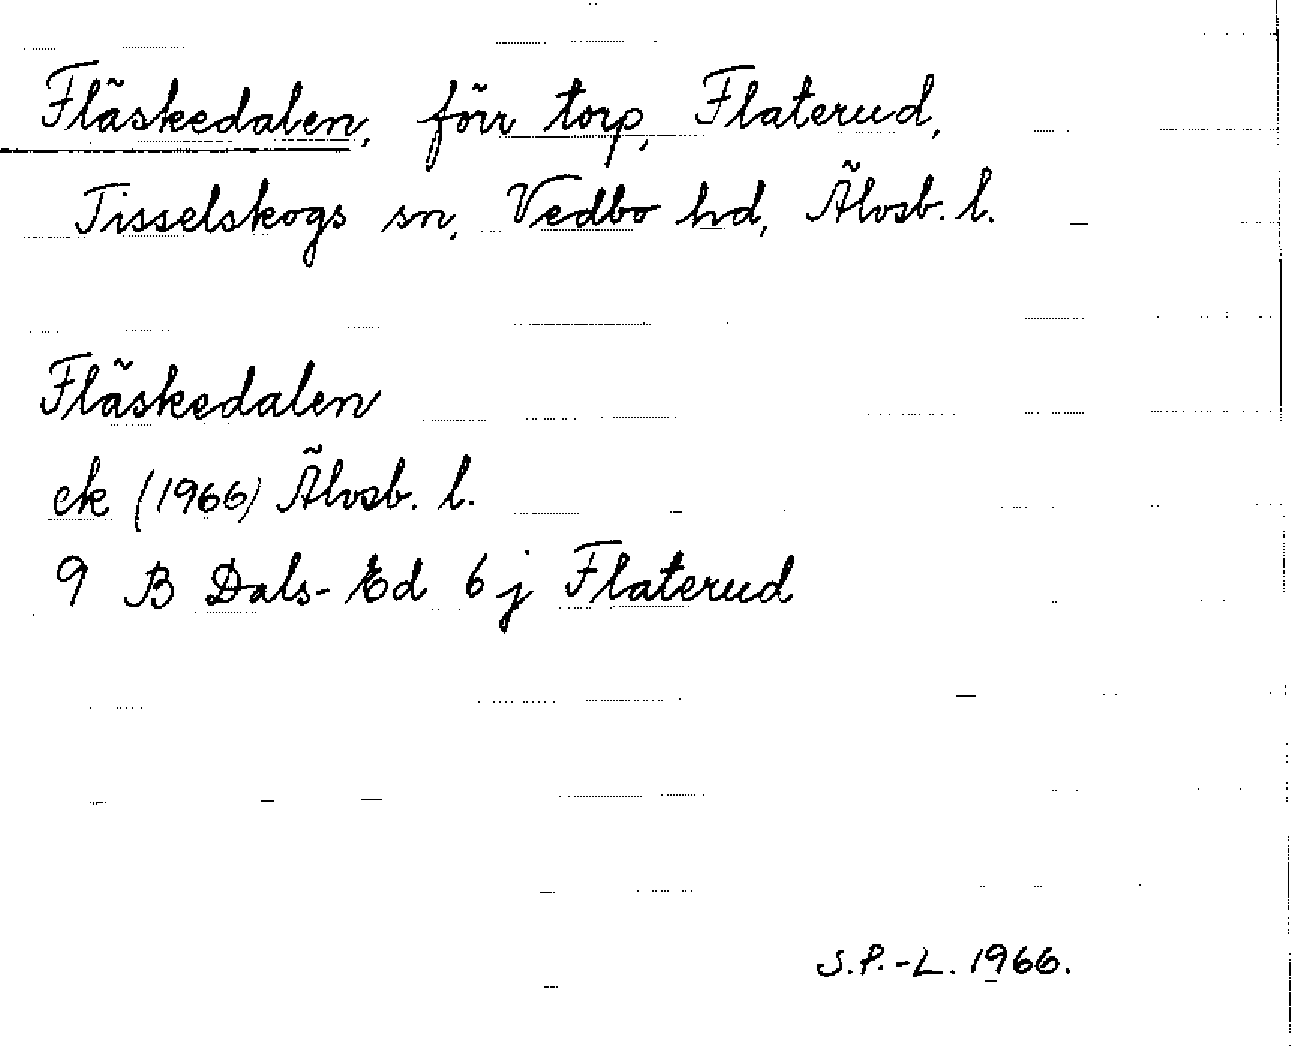 Fläskedalen, förr torp, Flaterud,
Tisselskogs sn, Vedbo hd, Älvsb. l.
Fläskedalen
ek (1966) Älvsb. l.
9 B Dals-Ed 6 j Flaterud
S.P.-L. 1966.